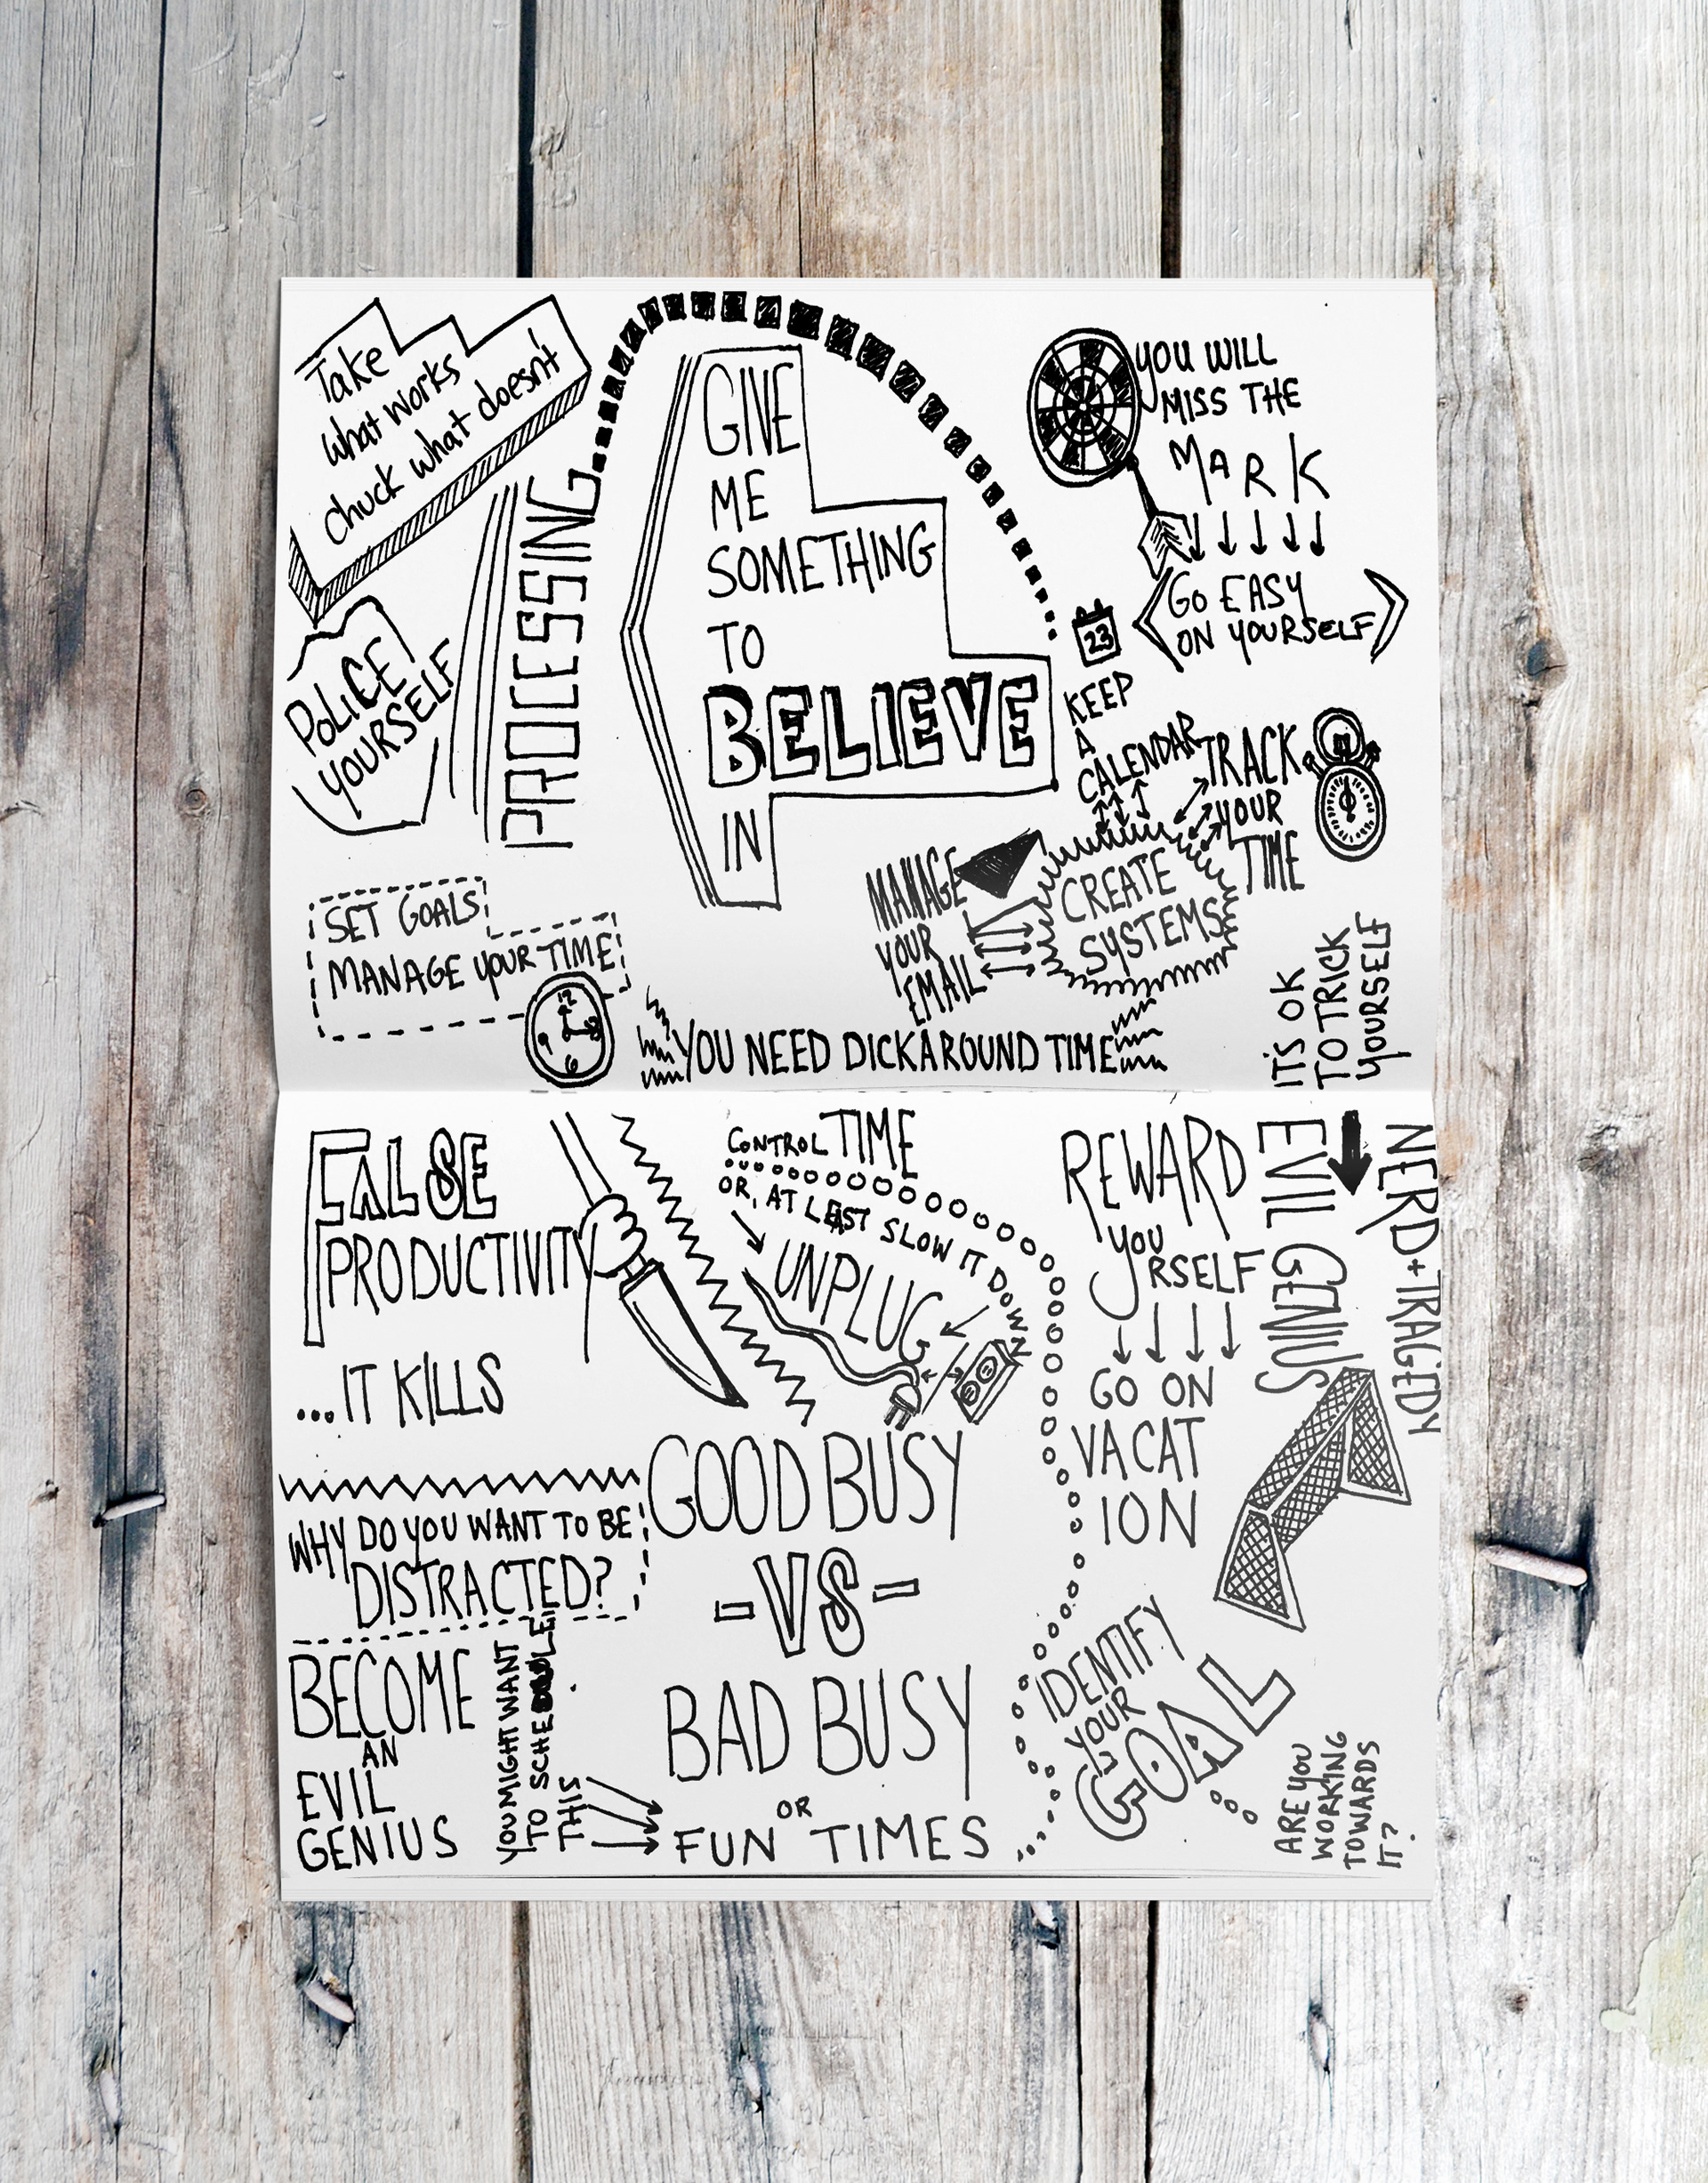 Take
what works
chuck what doesn't
POLICE
YOURSELF
PROCESSING
GIVE
ME
SOMETHING
TO
BELIEVE
IN
YOU WILL
MISS THE
MARK
GO EASY
ON YOURSELF
23
KEEP
A
CALENDAR
TRACK
YOUR
TIME
MANAGE
YOUR
EMAIL
CREATE
SYSTEMS
SET GOALS
MANAGE YOUR TIME
12
3
6
9
YOU NEED DICKAROUND TIME
IT'S OK
TO TRICK
YOURSELF
FALSE
PRODUCTIVITY
...IT KILLS
CONTROL TIME
OR, AT LEAST SLOW IT DOWN
UNPLUG
REWARD
YOU
RSELF
GO ON
VACAT
ION
NERD+TRAGEDY
EVIL GENIUS
WHY DO YOU WANT TO BE
DISTRACTED?
BECOME
AN
EVIL
GENIUS
YOU MIGHT WANT
TO SCHEDULE
THIS
GOOD BUSY
-VS-
BAD BUSY
OR
FUN TIMES
IDENTIFY
YOUR
GOAL
ARE YOU
WORKING
TOWARDS
IT?